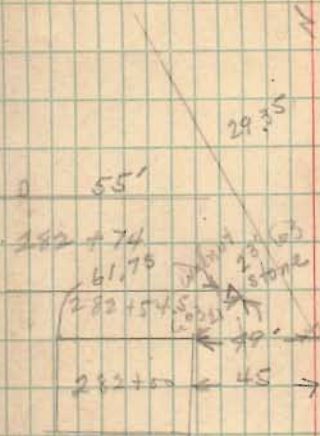 29.35
55'
282 + 74
61.75
282 + 54.5
walnut
stone
49'
282 + 00
45